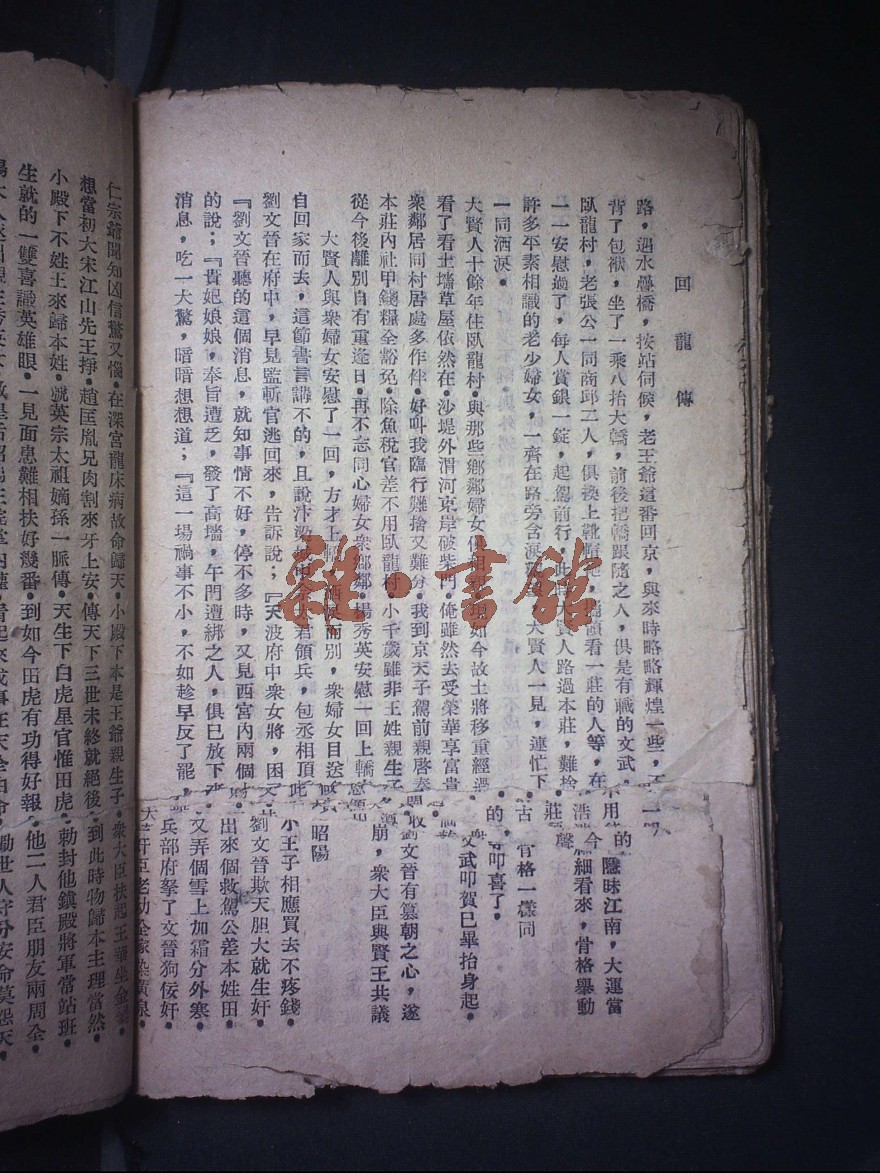 回龍傳
路，過水疊橋，按站伺候，老王爺這番回京，與來時略略輝煌一些，
背了包袱，坐了一乘八抬大轎，前後把轎跟隨之人，俱是有職的文武，
臥龍村，老張公一同商邱二人，俱換上靴帽
看一莊的人等，在
一一安慰過了，每人賞銀一錠，起駕前行，此時大賢人路過本莊，難捨
許多平素相識的老少婦女，一齊在路旁含淚
大賢人一見，連忙下
一同洒淚。
大賢人十餘年住臥龍村。與那些鄉鄰婦女
如今故土將移重經過
看了看土墻草屋依然在。沙堤外渭河東岸破柴門。俺雖然去受榮華享富貴
衆鄰居同村居處多作伴。好叫我臨行難捨又難分。我到京天子駕前親啓奏
本莊內社甲錢糧全豁免。除魚稅官差不用臥龍村。小千歲雖非王姓親生子
從今後離別自有重逢日。再不忘同心婦女衆鄉鄰。楊秀英安慰一回上轎
大賢人與衆婦女安慰了一回，方才上轎，洒淚而別，衆婦女目送
自回家而去，這節書言講不的，且說汴梁
君領兵，包丞相頂
劉文晉在府中，早見監斬官逃回來，告訴說；『天波府中衆女將，困
『劉文晉聽的這個消息，就知事情不好，停不多時，又見西宮內兩個
的說；『貴妃娘娘，奉旨遭乏，發了高墻，午門遭綁之人，俱已放下
消息，吃一大驚，暗暗想想道；『這一場禍事不小，不如趁早反了罷，
曖昧江南，大運當
細看來，骨格舉動
骨格一樣同
叩喜了。
文武叩賀已畢抬身起。
劉文晉有篡朝之心，遂
崩，衆大臣與賢王共議
昭陽
小王子相應買去不疼錢。
劉文晉欺天胆大就生奸
出來個救駕公差本姓田
又弄個雪上加霜分外寒。
兵部府拏了文晉狗佞奸
仁宗爺聞知凶信驚又惱。在深宮龍床病故命歸天。小殿下本是王爺親生子。衆大臣扶起王華坐金
想當初大宋江山先王掙。趙匡胤兄肉割來牙上安。傳天下三世未終就絕後。到此時物歸本主理當然
小殿下不姓王來歸本姓。號英宗太祖嫡孫一脈傳。天生下白虎星官惟田虎。勅封他鎮殿將軍當站班
生就的一雙喜識英雄眼。一見面患難相扶好幾番。到如今田虎有功得好報。他二人君臣朋友兩周全
勸世人守分安命莫怨天。
雜·書館